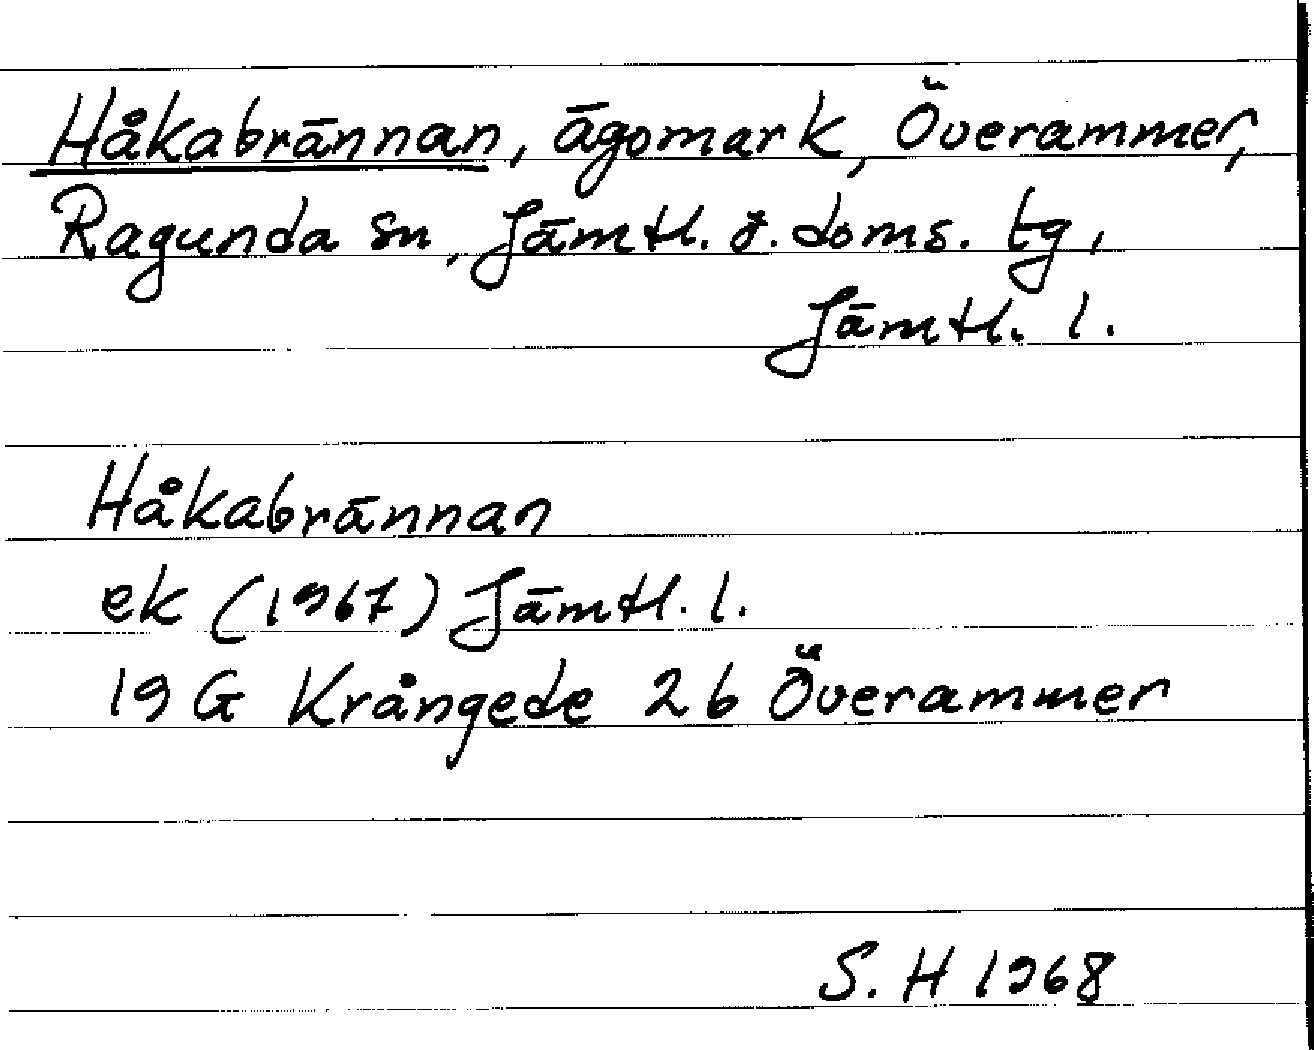 Håkabrännan, ägomark, Överammer,
Ragunda sn, Jämtl. ö. doms. tg,
Jämtl. l.
Håkabrännan
ek (1967) Jämtl. l.
19 G Krångede 2b Överammer
S. H 1968